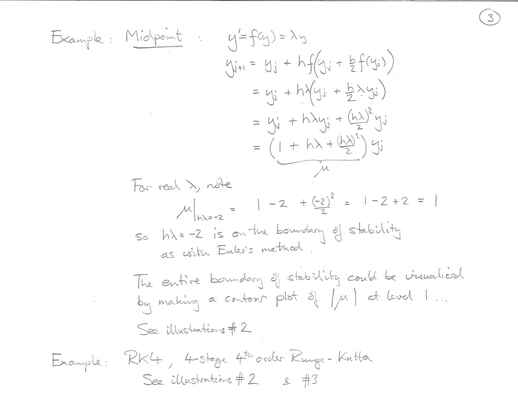 3
Example: Midpoint : y' = f(y) = λy
y_{j+1} = y_j + hf(y_j + h/2 f(y_j))
= y_j + hλ(y_j + h/2 λy_j)
= y_j + hλy_j + (hλ)²/2 y_j
= (1 + hλ + (hλ)²/2) y_j
μ
For real λ, note
μ|_{hλ=-2} = 1 - 2 + (-2)²/2 = 1 - 2 + 2 = 1
so hλ = -2 is on the boundary of stability
as with Euler's method.
The entire boundary of stability could be visualized
by making a contour plot of |μ| at level 1 ...
See illustrations #2
Example: RK4, 4-stage 4th order Runge-Kutta
See illustrations #2 & #3